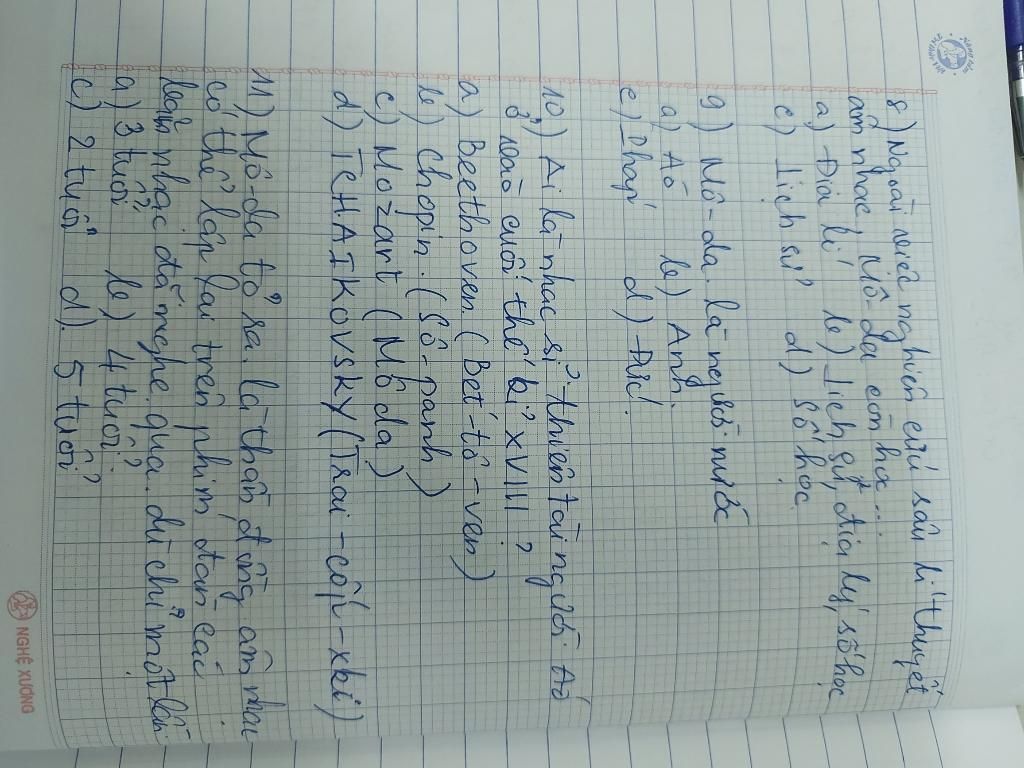 8) Ngoài việc nghiên cứu sâu lí thuyết
âm nhạc, Mô-da còn học...
a) Địa lí b) Lịch sử, địa lý, số học
c) Lịch sử d) Số học
9) Mô-da là người nước
a) Áo b) Anh.
c) Pháp d) Đức.
10) Ai là nhạc sĩ thiên tài người Áo
ở vào cuối thế kỉ XVIII ?
a) Beethoven. (Bét-tô-ven)
b) Chopin. (Sô-panh)
c) Mozart (Mô da)
d) TCHAIKOVSKY (Trai-cốp-xki)
11) Mô-da tỏ ra là thần đồng âm nhạc
có thể lặp lại trên phím đàn các
bản nhạc đã nghe qua dù chỉ một lần
a) 3 tuổi b) 4 tuổi ?
c) 2 tuổi d). 5 tuổi ?
NGHỆ XƯƠNG